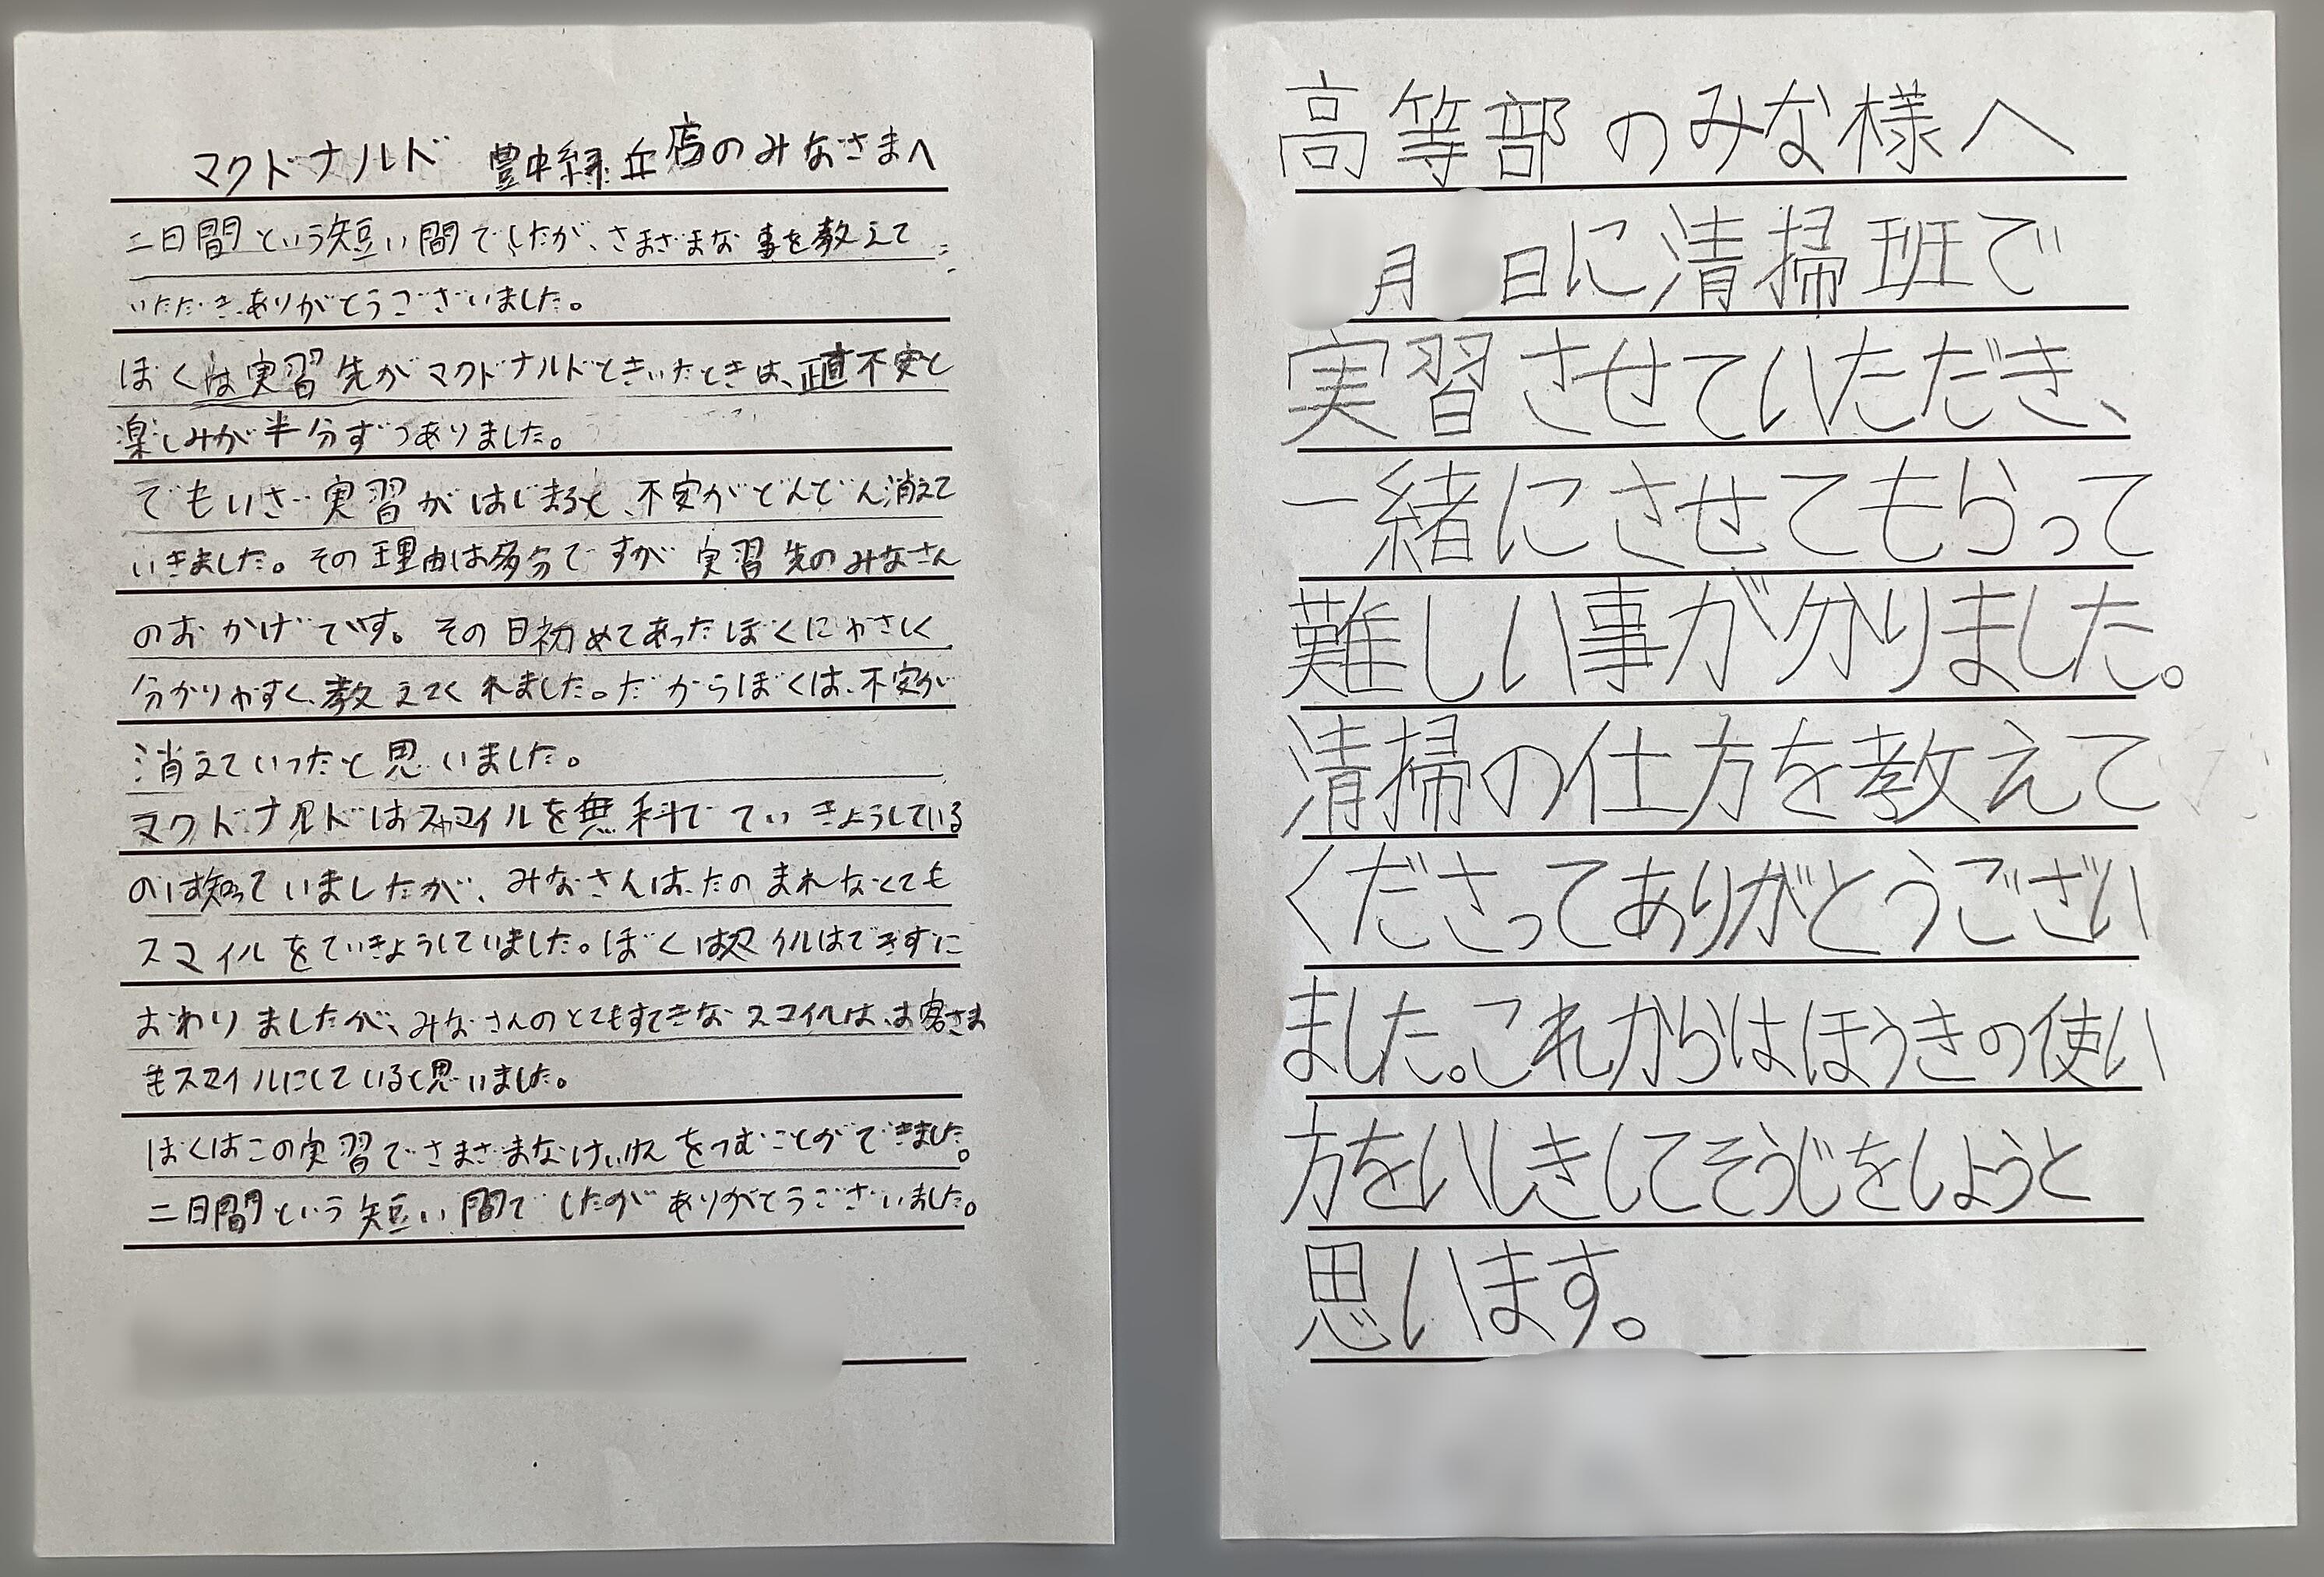 マクドナルド 豊中緑丘店のみなさまへ
二日間という短い間でしたが、さまざまな事を教えて
いただき、ありがとうございました。
ぼくは実習先がマクドナルドときいたときは、正直不安と
楽しみが半分ずつありました。
でもいざ実習がはじまると、不安がどんどん消えて
いきました。その理由は多分ですが実習先のみなさん
のおかげです。その日初めてあったぼくにやさしく
分かりやすく、教えてくれました。だからぼくは、不安が
消えていったと思いました。
マクドナルドはスマイルを無料でていきょうしている
のは知っていましたが、みなさんは、たのまれなくても
スマイルをていきょうしていました。ぼくはスマイルはできずに
おわりましたが、みなさんのとてもすてきなスマイルは、お客さま
もスマイルにしていると思いました。
ぼくはこの実習でさまざまなけいけんをつむことができました。
二日間という短い間でしたがありがとうございました。
高等部のみな様へ
月 日に清掃班で
実習させていただき、
一緒にさせてもらって
難しい事が分りました。
清掃の仕方を教えて
くださってありがとうござい
ました。これからはほうきの使い
方をいしきしてそうじをしようと
思います。